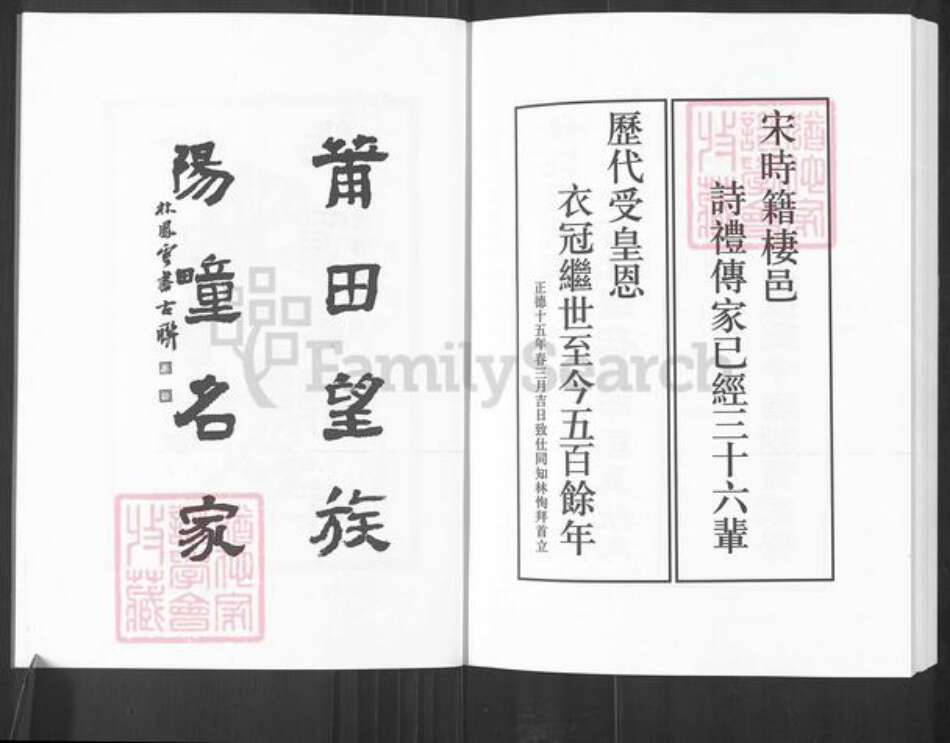 宋時籍棲邑
詩禮傳家已經三十六輩
歷代受皇恩
衣冠繼世至今五百餘年
正德十五年春三月吉日致仕同知林恂拜首立
莆田望族
陽曈名家
林鳳雲書古聯
FamilySearch